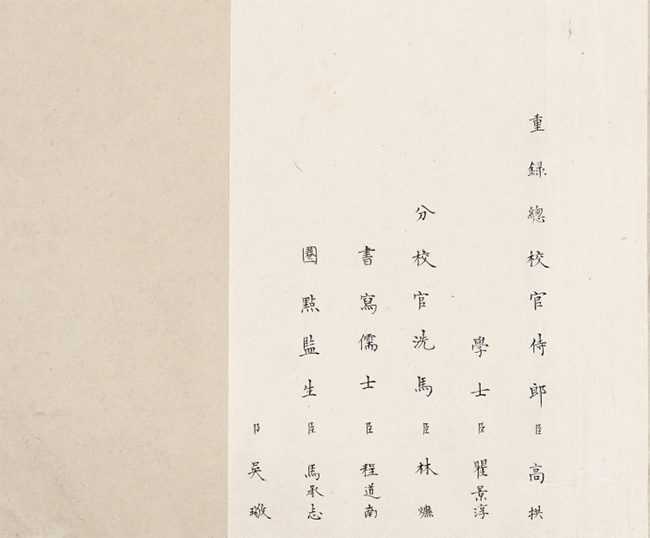 重錄總校官侍郎臣高拱
學士臣瞿景淳
分校官洗馬臣林燫
書寫儒士臣程道南
圈點監生臣馬承志
臣吳璥